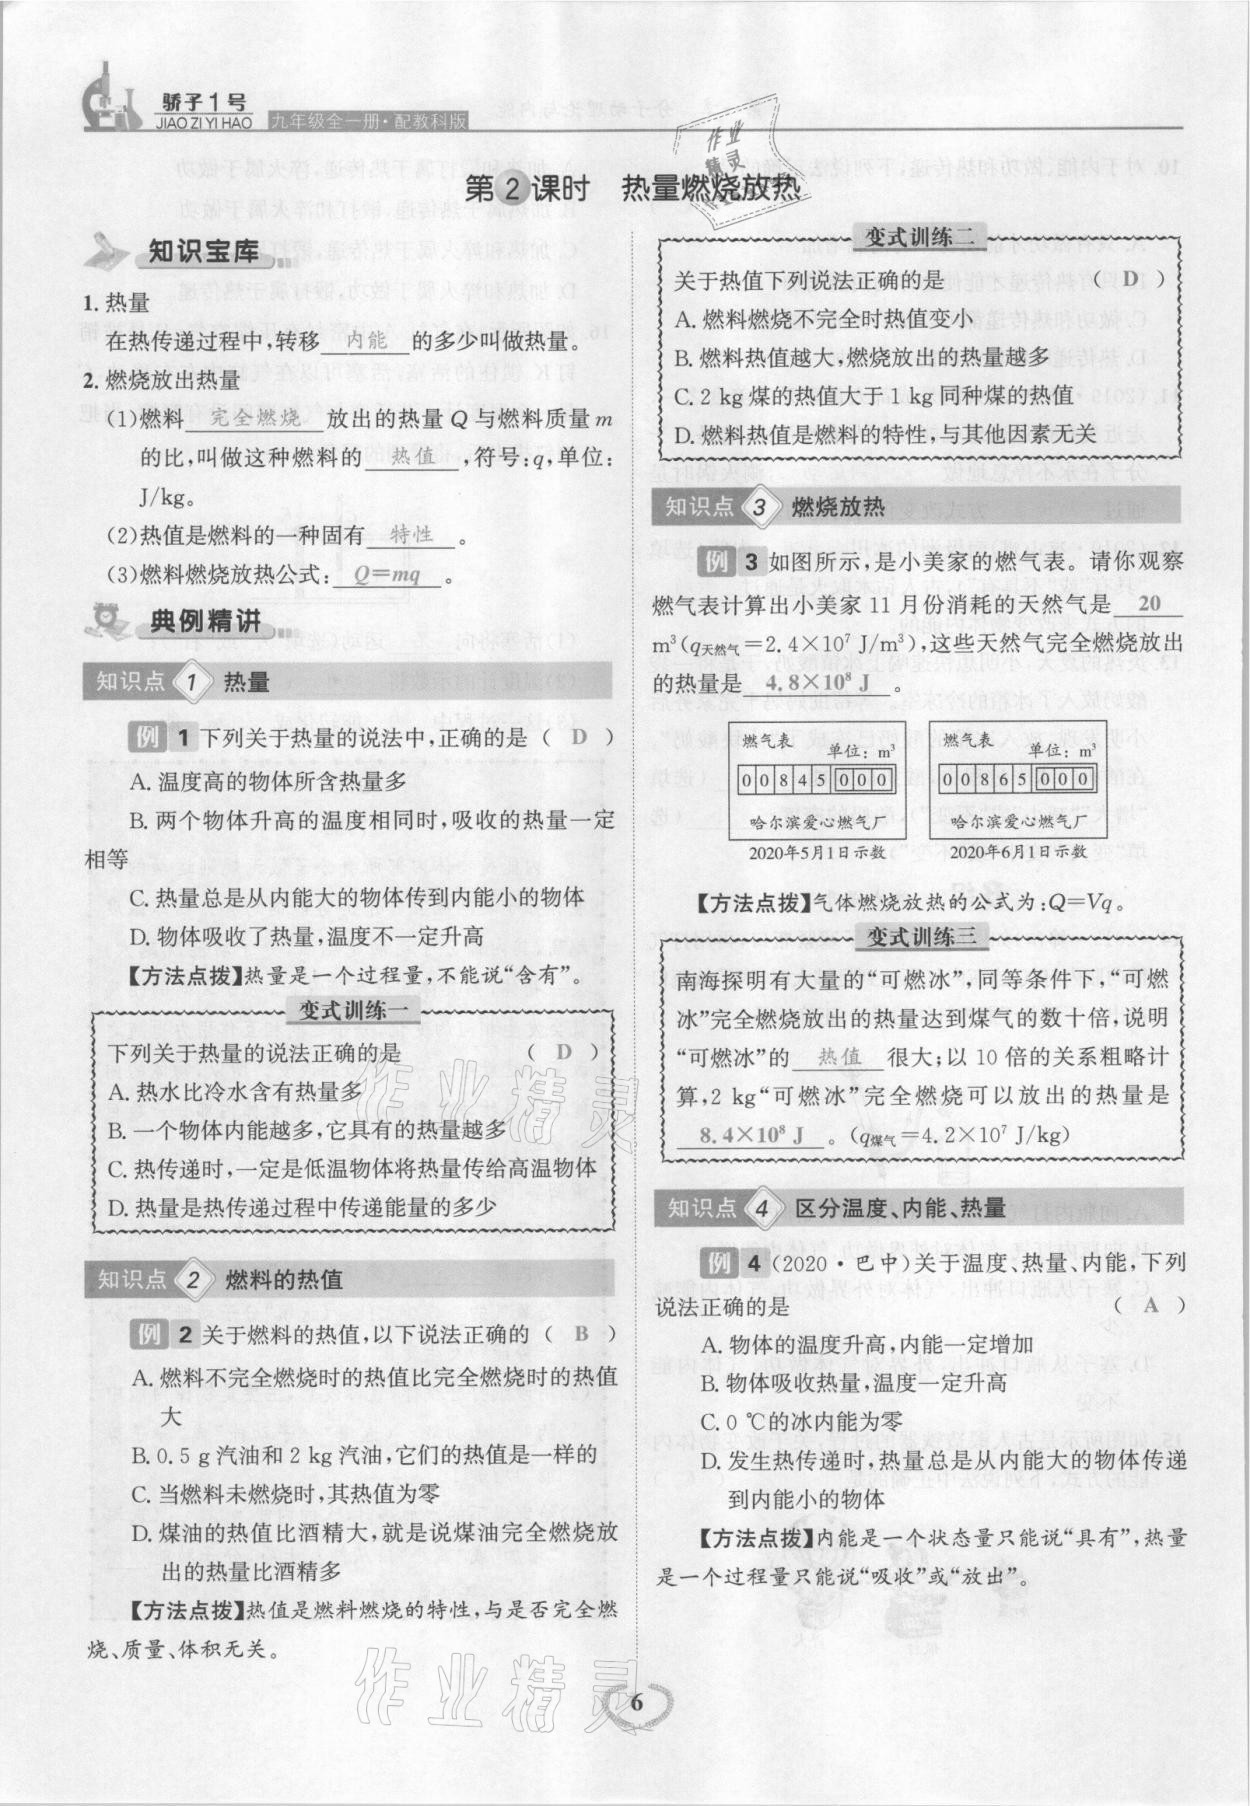 骄子1号
JIAO ZI YI HAO 九年级全一册·配教科版
作业
精灵
第2课时 热量燃烧放热
知识宝库
1. 热量
在热传递过程中,转移 内能 的多少叫做热量。
2. 燃烧放出热量
(1)燃料 完全燃烧 放出的热量 Q 与燃料质量 m
的比,叫做这种燃料的 热值 ,符号:q,单位:
J/kg。
(2)热值是燃料的一种固有 特性 。
(3)燃料燃烧放热公式: Q=mq 。
典例精讲
知识点 1 热量
例 1 下列关于热量的说法中,正确的是( D )
A. 温度高的物体所含热量多
B. 两个物体升高的温度相同时,吸收的热量一定
相等
C. 热量总是从内能大的物体传到内能小的物体
D. 物体吸收了热量,温度不一定升高
【方法点拨】热量是一个过程量,不能说“含有”。
变式训练一
下列关于热量的说法正确的是 ( D )
A. 热水比冷水含有热量多
B. 一个物体内能越多,它具有的热量越多
C. 热传递时,一定是低温物体将热量传给高温物体
D. 热量是热传递过程中传递能量的多少
知识点 2 燃料的热值
例 2 关于燃料的热值,以下说法正确的( B )
A. 燃料不完全燃烧时的热值比完全燃烧时的热值
大
B. 0.5 g 汽油和 2 kg 汽油,它们的热值是一样的
C. 当燃料未燃烧时,其热值为零
D. 煤油的热值比酒精大,就是说煤油完全燃烧放
出的热量比酒精多
【方法点拨】热值是燃料燃烧的特性,与是否完全燃
烧、质量、体积无关。
变式训练二
关于热值下列说法正确的是 ( D )
A. 燃料燃烧不完全时热值变小
B. 燃料热值越大,燃烧放出的热量越多
C. 2 kg 煤的热值大于 1 kg 同种煤的热值
D. 燃料热值是燃料的特性,与其他因素无关
知识点 3 燃烧放热
例 3 如图所示,是小美家的燃气表。请你观察
燃气表计算出小美家 11 月份消耗的天然气是 20
m³(q天然气=2.4×10⁷ J/m³),这些天然气完全燃烧放出
的热量是 4.8×10⁸ J 。
燃气表 单位:m³
00845000
哈尔滨爱心燃气厂
2020年5月1日示数
燃气表 单位:m³
00865000
哈尔滨爱心燃气厂
2020年6月1日示数
【方法点拨】气体燃烧放热的公式为:Q=Vq。
变式训练三
南海探明有大量的“可燃冰”,同等条件下,“可燃
冰”完全燃烧放出的热量达到煤气的数十倍,说明
“可燃冰”的 热值 很大;以 10 倍的关系粗略计
算,2 kg“可燃冰”完全燃烧可以放出的热量是
8.4×10⁸ J 。(q煤气=4.2×10⁷ J/kg)
知识点 4 区分温度、内能、热量
例 4 (2020·巴中)关于温度、热量、内能,下列
说法正确的是 ( A )
A. 物体的温度升高,内能一定增加
B. 物体吸收热量,温度一定升高
C. 0 ℃的冰内能为零
D. 发生热传递时,热量总是从内能大的物体传递
到内能小的物体
【方法点拨】内能是一个状态量只能说“具有”,热量
是一个过程量只能说“吸收”或“放出”。
作业精灵
作业精灵
6